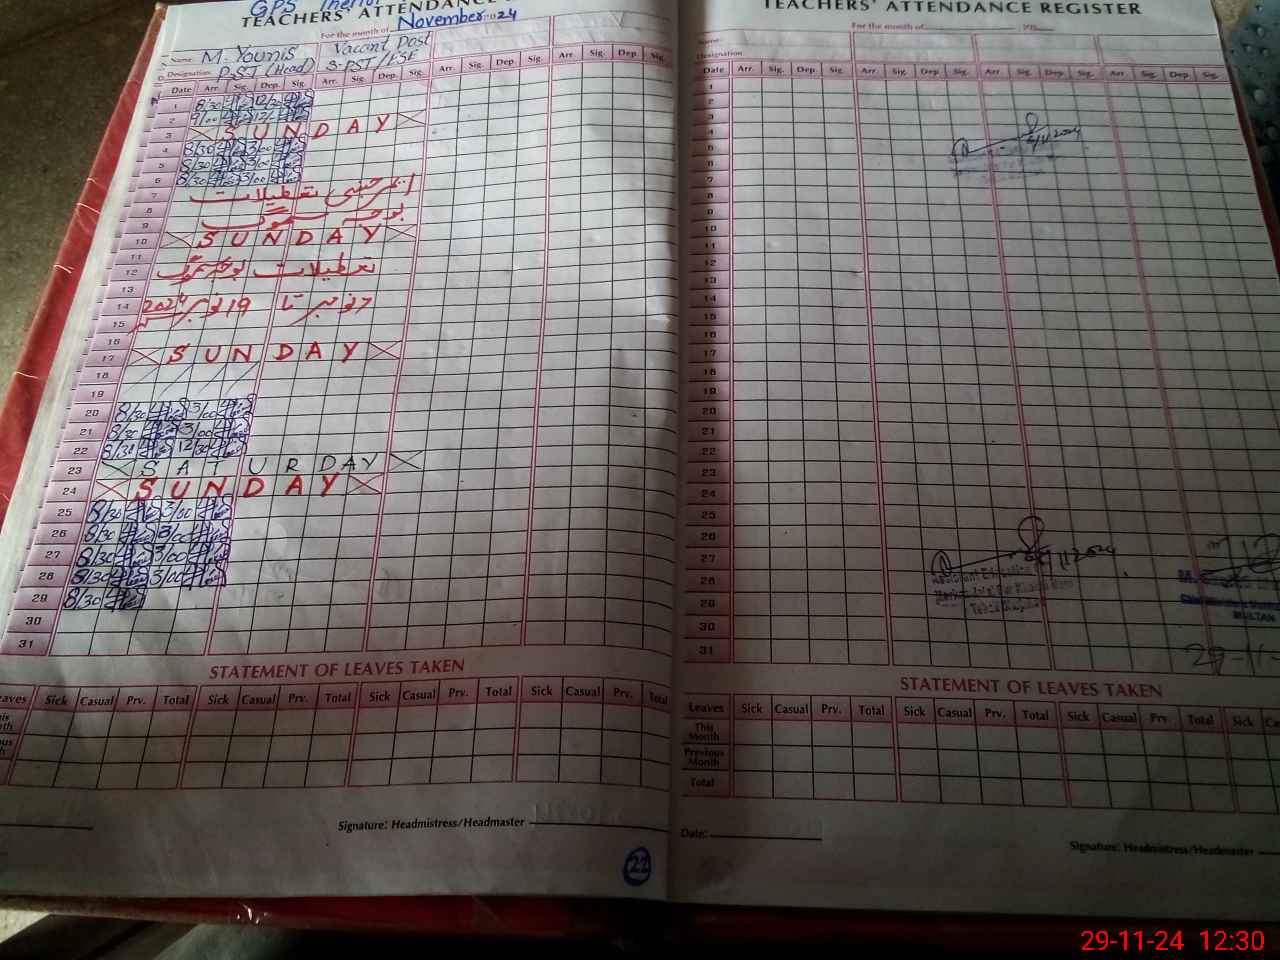 GPS
TEACHERS' ATTENDANCE
For the month of November 2024
Name: M. Younis Vacant Post
Designation: PST (Head) S-PST/ESE
Date Arr. Sig. Dep. Sig. Arr. Sig. Dep. Sig. Arr. Sig. Dep. Sig. Arr. Sig. Dep. Sig.
1 8/30 12/30
2 9/00 12/
3 SUNDAY
4 8/30 3/00
5 8/30 3/00
6 8/30 3/00
7 ایمرجنسی تعطیلات
8 بوجہ سموگ
9
10 SUNDAY
11
12 تعطیلات بوجہ سموگ
13
14 نومبر تا 19 نومبر 2024
15
16
17 SUNDAY
18
19
20 8/30 3/00
21 8/30 3/00
22 8/30 12/30
23 SATURDAY
24 SUNDAY
25 8/30 3/00
26 8/30 3/00
27 8/30 3/00
28 8/30 3/00
29 8/30
30
31
STATEMENT OF LEAVES TAKEN
Leaves Sick Casual Prv. Total Sick Casual Prv. Total Sick Casual Prv. Total Sick Casual Prv. Total
Signature: Headmistress/Headmaster
22
TEACHERS' ATTENDANCE REGISTER
For the month of
Name:
Designation
Date Arr. Sig. Dep. Sig. Arr. Sig. Dep. Sig. Arr. Sig. Dep. Sig. Arr. Sig. Dep. Sig.
1
2
3
4
5
6
7
8
9
10
11
12
13
14
15
16
17
18
19
20
21
22
23
24
25
26
27
28
29
30
31
MULTAN
29-11-
STATEMENT OF LEAVES TAKEN
Leaves Sick Casual Prv. Total Sick Casual Prv. Total Sick Casual Prv. Total Sick
This Month
Previous Month
Total
Date:
Signature: Headmistress/Headmaster
29-11-24 12:30